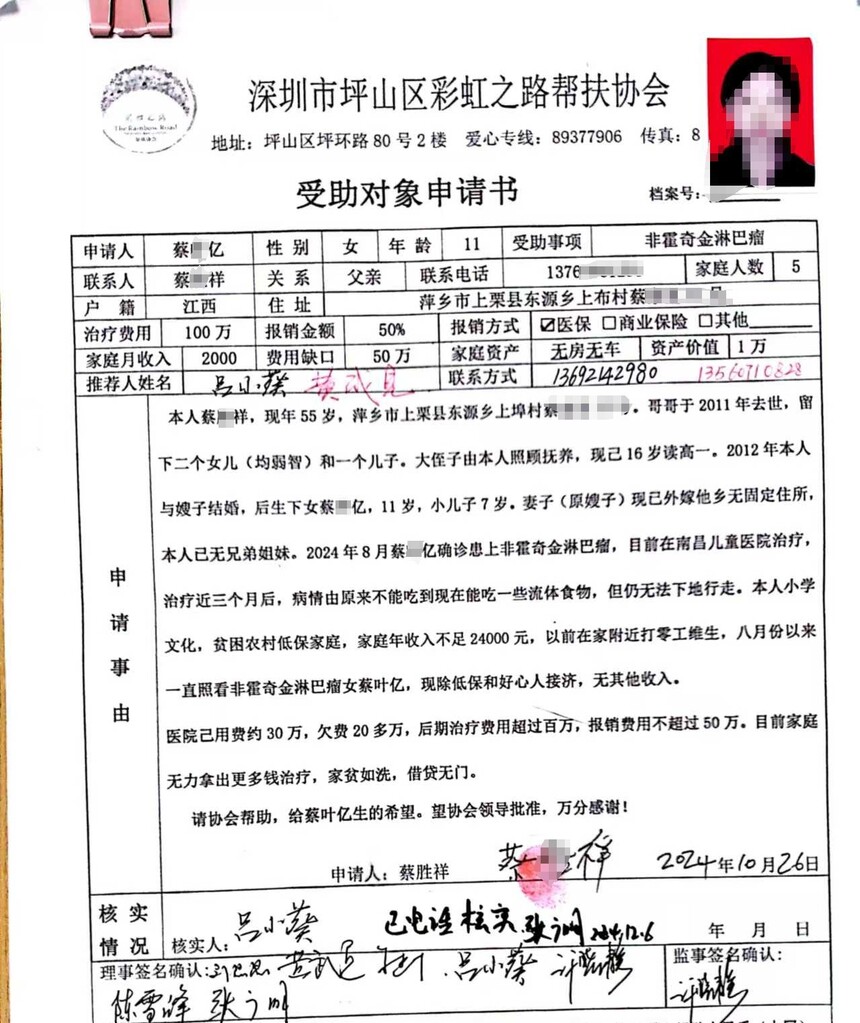 The Rainbow Road
深圳市坪山区彩虹之路帮扶协会
地址：坪山区坪环路80号2楼 爱心专线：89377906 传真：8
受助对象申请书
档案号：
申请人 蔡 亿 性别 女 年龄 11 受助事项 非霍奇金淋巴瘤
联系人 蔡 祥 关系 父亲 联系电话 1376 家庭人数 5
户籍 江西 住址 萍乡市上栗县东源乡上布村蔡
治疗费用 100万 报销金额 50% 报销方式 ☑医保 □商业保险 □其他
家庭月收入 2000 费用缺口 50万 家庭资产 无房无车 资产价值 1万
推荐人姓名 吕小葵 黄武见 联系方式 13692142980 13560710828
本人蔡 祥，现年55岁，萍乡市上栗县东源乡上埠村蔡 。哥哥于2011年去世，留
下二个女儿（均弱智）和一个儿子。大侄子由本人照顾抚养，现己16岁读高一。2012年本人
与嫂子结婚，后生下女蔡 亿，11岁，小儿子7岁。妻子（原嫂子）现已外嫁他乡无固定住所，
本人已无兄弟姐妹。2024年8月蔡 亿确诊患上非霍奇金淋巴瘤，目前在南昌儿童医院治疗，
申请事由
治疗近三个月后，病情由原来不能吃到现在能吃一些流体食物，但仍无法下地行走。本人小学
文化，贫困农村低保家庭，家庭年收入不足24000元，以前在家附近打零工维生，八月份以来
一直照看非霍奇金淋巴瘤女蔡叶亿，现除低保和好心人接济，无其他收入。
医院己用费约30万，欠费20多万，后期治疗费用超过百万，报销费用不超过50万。目前家庭
无力拿出更多钱治疗，家贫如洗，借贷无门。
请协会帮助，给蔡叶亿生的希望。望协会领导批准，万分感谢！
申请人：蔡胜祥 蔡 祥 2024年10月26日
核实情况 核实人：吕小葵 已电话核实 2024.12.6 年 月 日
理事签名确认： 吕小葵 监事签名确认：
陈雪峰